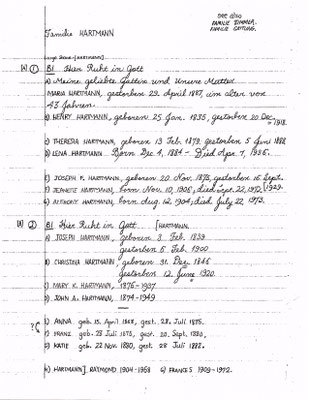 see also
FAMILIE ZIMMER.
FAMILIE
Familie HARTMANN
Large Stone - [HARTMANN]
[A] ① B1. Hier Ruht in Gott
a) Meine geliebte Gattin und Unsere Mutter
MARIA HARTMANN, gestorben 29. April 1887, im alter von
43 Jahren.
b) HENRY HARTMANN, geboren 25 Jan. 1835, gestorben 20 Dec.
1918.
c) THERESA HARTMANN, geboren 13 Feb. 1879. gestorben 5 Juni 1888.
d) LENA HARTMANN. Born Dec 4, 1884 - Died Apr. 7, 1956.
e) JOSEPH F. HARTMANN, geboren 20 Nov. 1875, gestorben 16 Sept.
1929.
f) JEANNETTE HARTMANN, born Nov. 10, 1906; died Sept. 22, 1972.
g) HARTMANN, born Aug. 12, 1904; died July 22, 1973.
[A] ② B1 Hier Ruht in Gott [HARTMANN.
a) JOSEPH HARTMANN, geboren 3 Feb. 1839
gestorben 6 Feb. 1900
b) CHRISTINA HARTMANN, geboren 31 Dez. 1846
gestorben 12 June 1920.
c) MARY K. HARTMANN, 1876-1937
d) JOHN A. HARTMANN, 1874-1949
e) ANNA geb. 15. April 1868, gest. 28. Juli 1875.
f) FRANZ geb. 23 Juli 1873, gest. 20. Sept. 1880.
g) KATIE geb. 22 Nov 1880, gest. 28 Juli 1882.
h) HARTMANN]. RAYMOND 1904-1968 i) FRANCES 1909-1972.